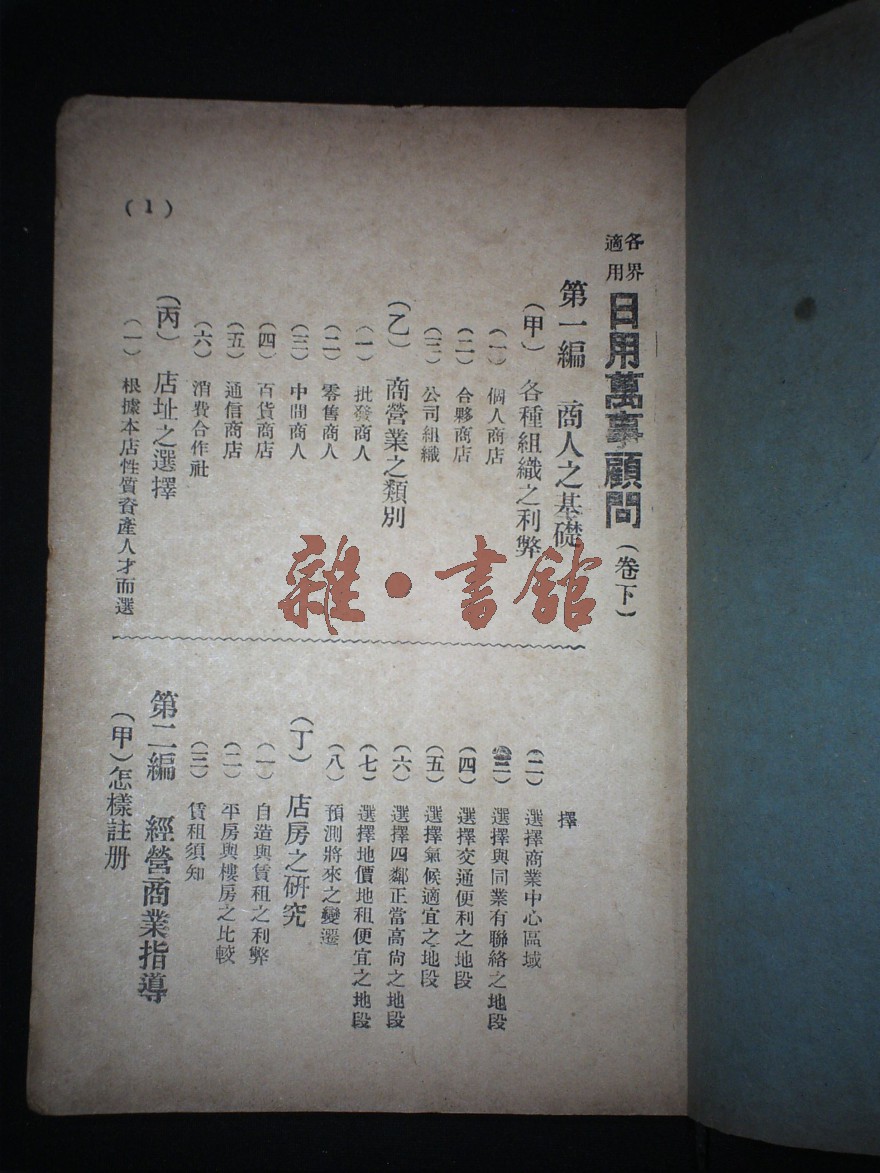 各界
適用
日用萬事顧問（卷下）
第一編　商人之基礎
（甲）各種組織之利弊
（一）個人商店
（二）合夥商店
（三）公司組織
（乙）商營業之類別
（一）批發商人
（二）零售商人
（三）中間商人
（四）百貨商店
（五）通信商店
（六）消費合作社
（丙）店址之選擇
（一）根據本店性質資產人才而選
擇
（二）選擇商業中心區域
（三）選擇與同業有聯絡之地段
（四）選擇交通便利之地段
（五）選擇氣候適宜之地段
（六）選擇四鄰正當高尚之地段
（七）選擇地價地租便宜之地段
（八）預測將來之變遷
（丁）店房之研究
（一）自造與賃租之利弊
（二）平房與樓房之比較
（三）賃租須知
第二編　經營商業指導
（甲）怎樣註册
（1）
雜·書館